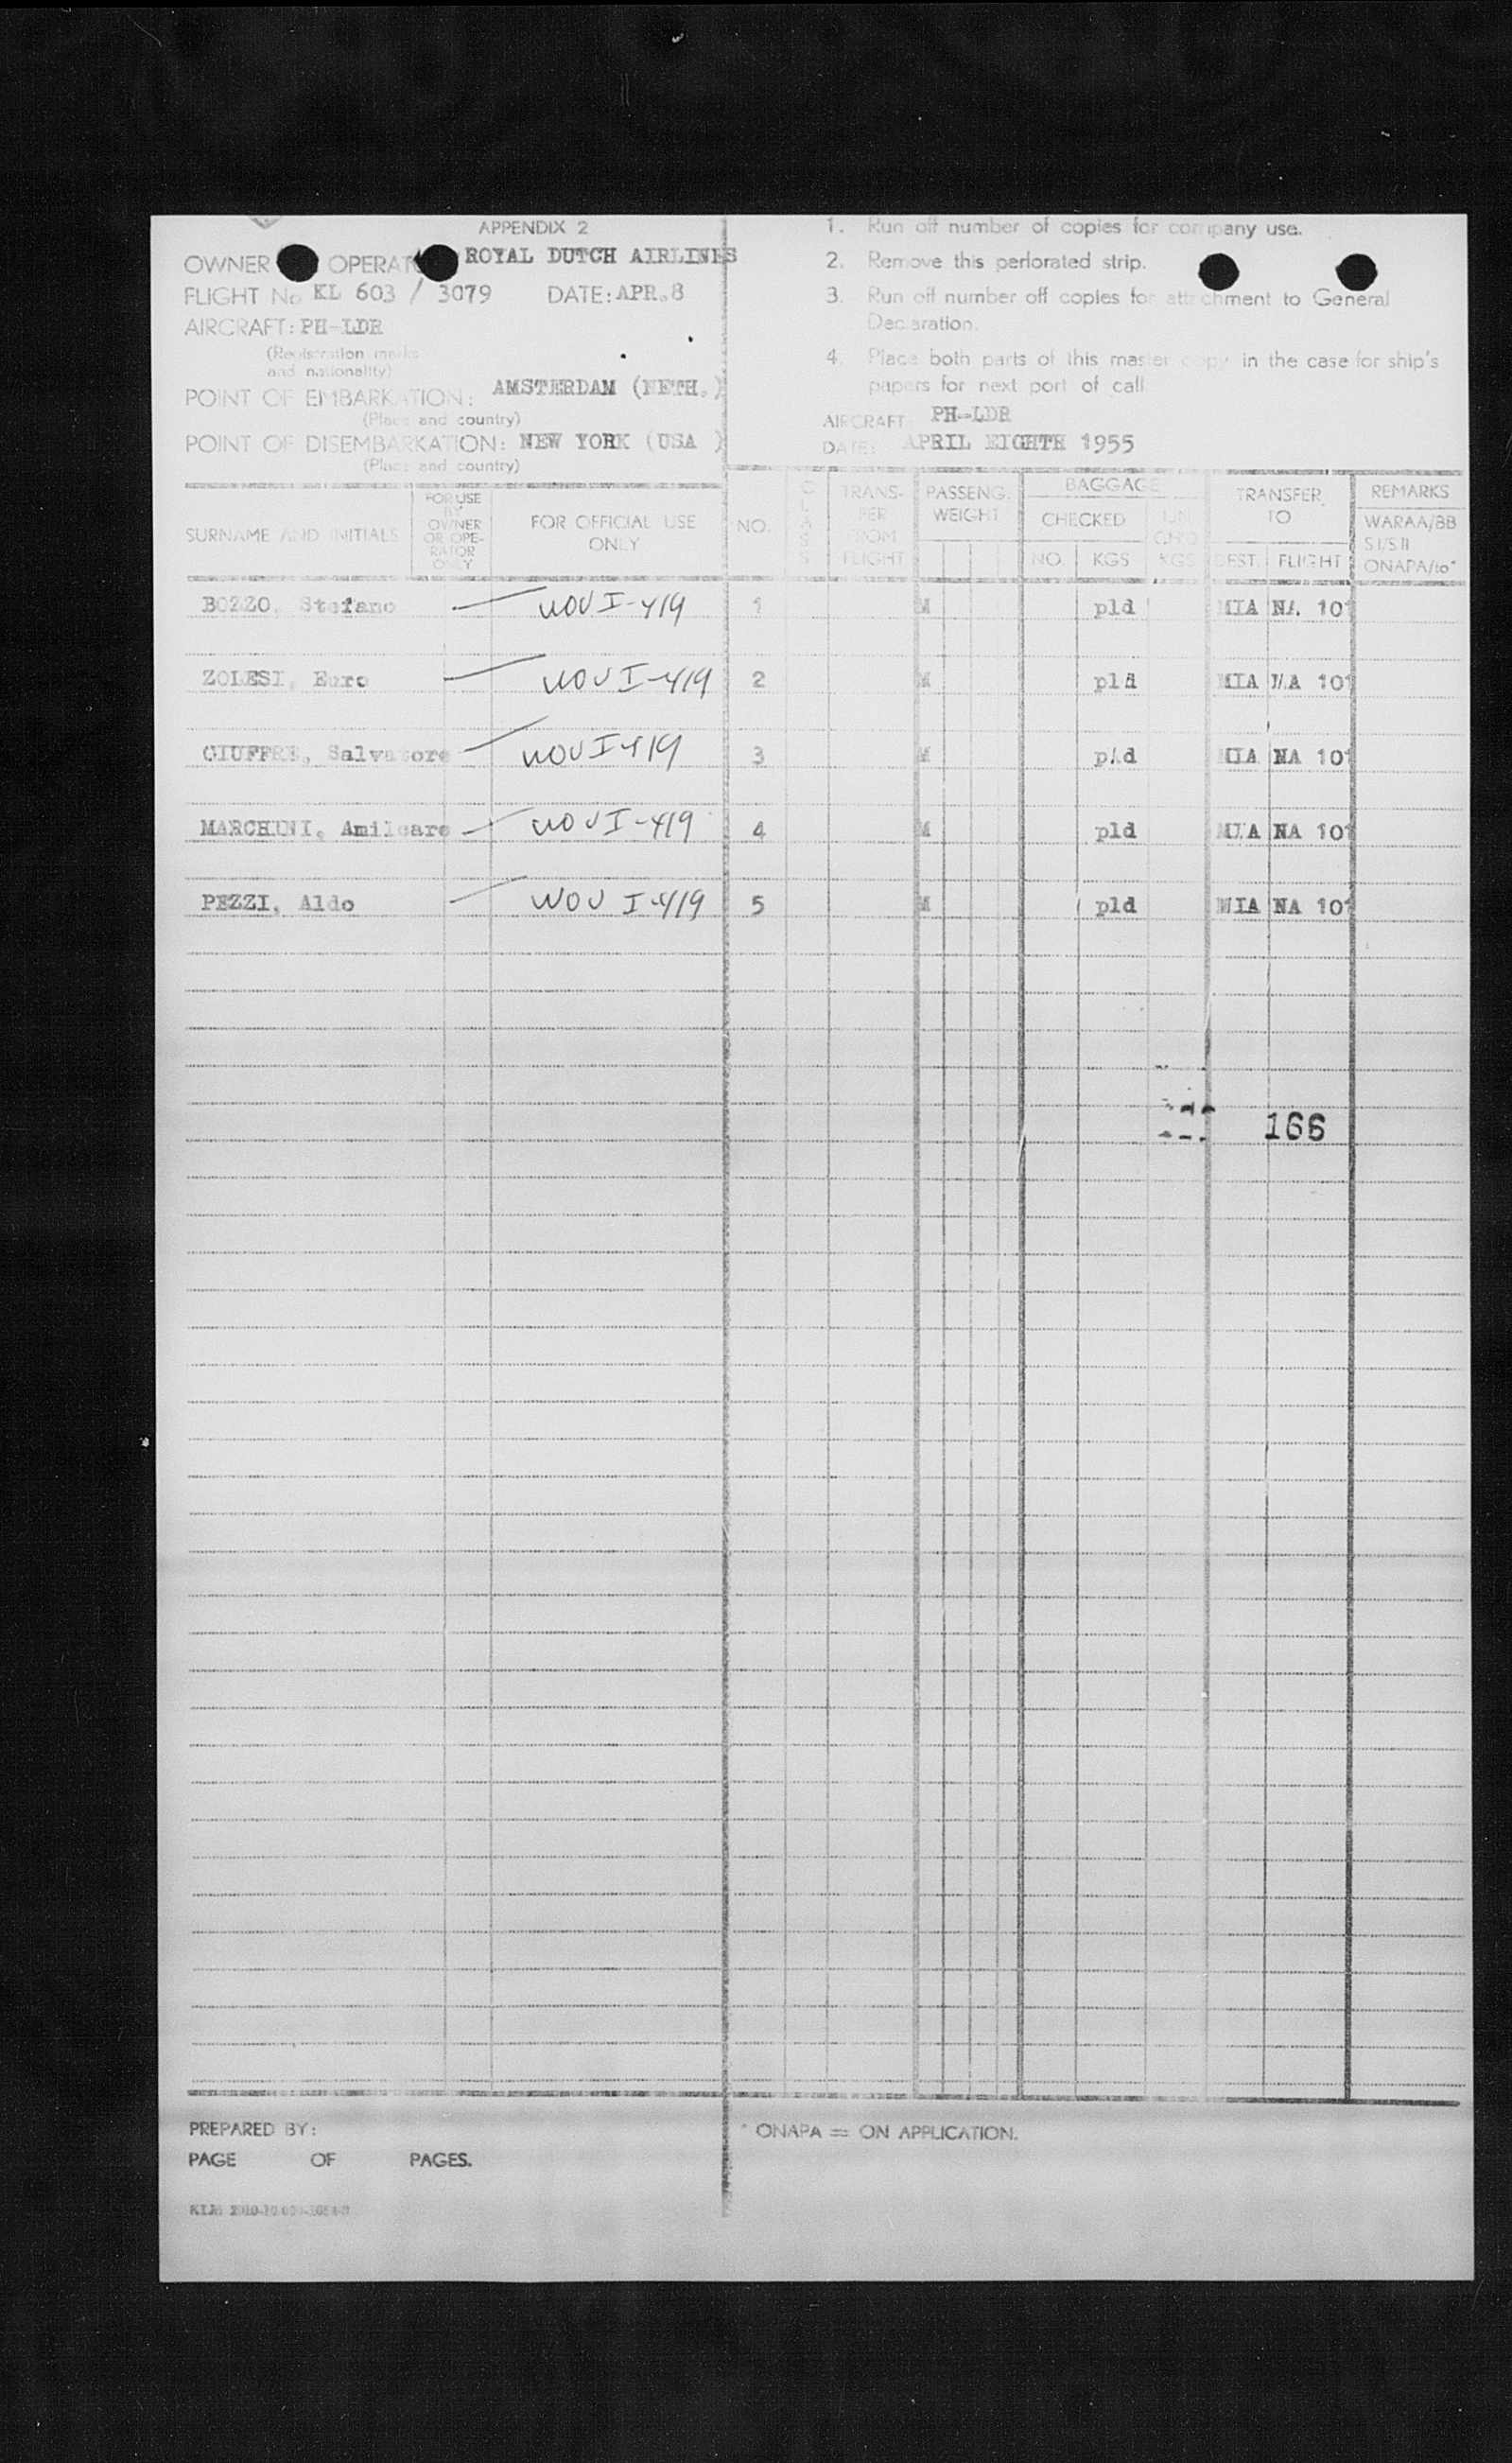 APPENDIX 2
OWNER OPERAT ROYAL DUTCH AIRLINES
FLIGHT No KL 603 / 3079 DATE: APR.8
AIRCRAFT: PH-LDR
(Registration marks
and nationality)
POINT OF EMBARKATION: AMSTERDAM (NETH.)
(Place and country)
POINT OF DISEMBARKATION: NEW YORK (USA )
(Place and country)
1. Run off number of copies for company use.
2. Remove this perforated strip.
3. Run off number off copies for attachment to General
Declaration.
4. Place both parts of this master copy in the case for ship's
papers for next port of call
AIRCRAFT: PH-LDR
DATE: APRIL EIGHTH 1955
SURNAME AND INITIALS
FOR USE
BY
OWNER
OR OPE-
RATOR
ONLY
FOR OFFICIAL USE
ONLY
NO.
CLASS
TRANS-
FER
FROM
FLIGHT
PASSENG.
WEIGHT
BAGGAGE
CHECKED
NO. KGS
UN
CH'D
KGS
TRANSFER
TO
DEST. FLIGHT
REMARKS
WARAA/BB
S I/S II
ONAPA/to*
BOZZO, Stefano NOV I-419 1 M pld MIA NA 101
ZOLESI, Euro NOV I-419 2 M pld MIA NA 101
GIUFFRE, Salvatore NOV I-419 3 M pld MIA NA 101
MARCHINI, Amilcare NOV I-419 4 M pld MIA NA 101
PEZZI, Aldo NOV I-419 5 M pld MIA NA 101
166
PREPARED BY:
PAGE OF PAGES.
* ONAPA = ON APPLICATION.